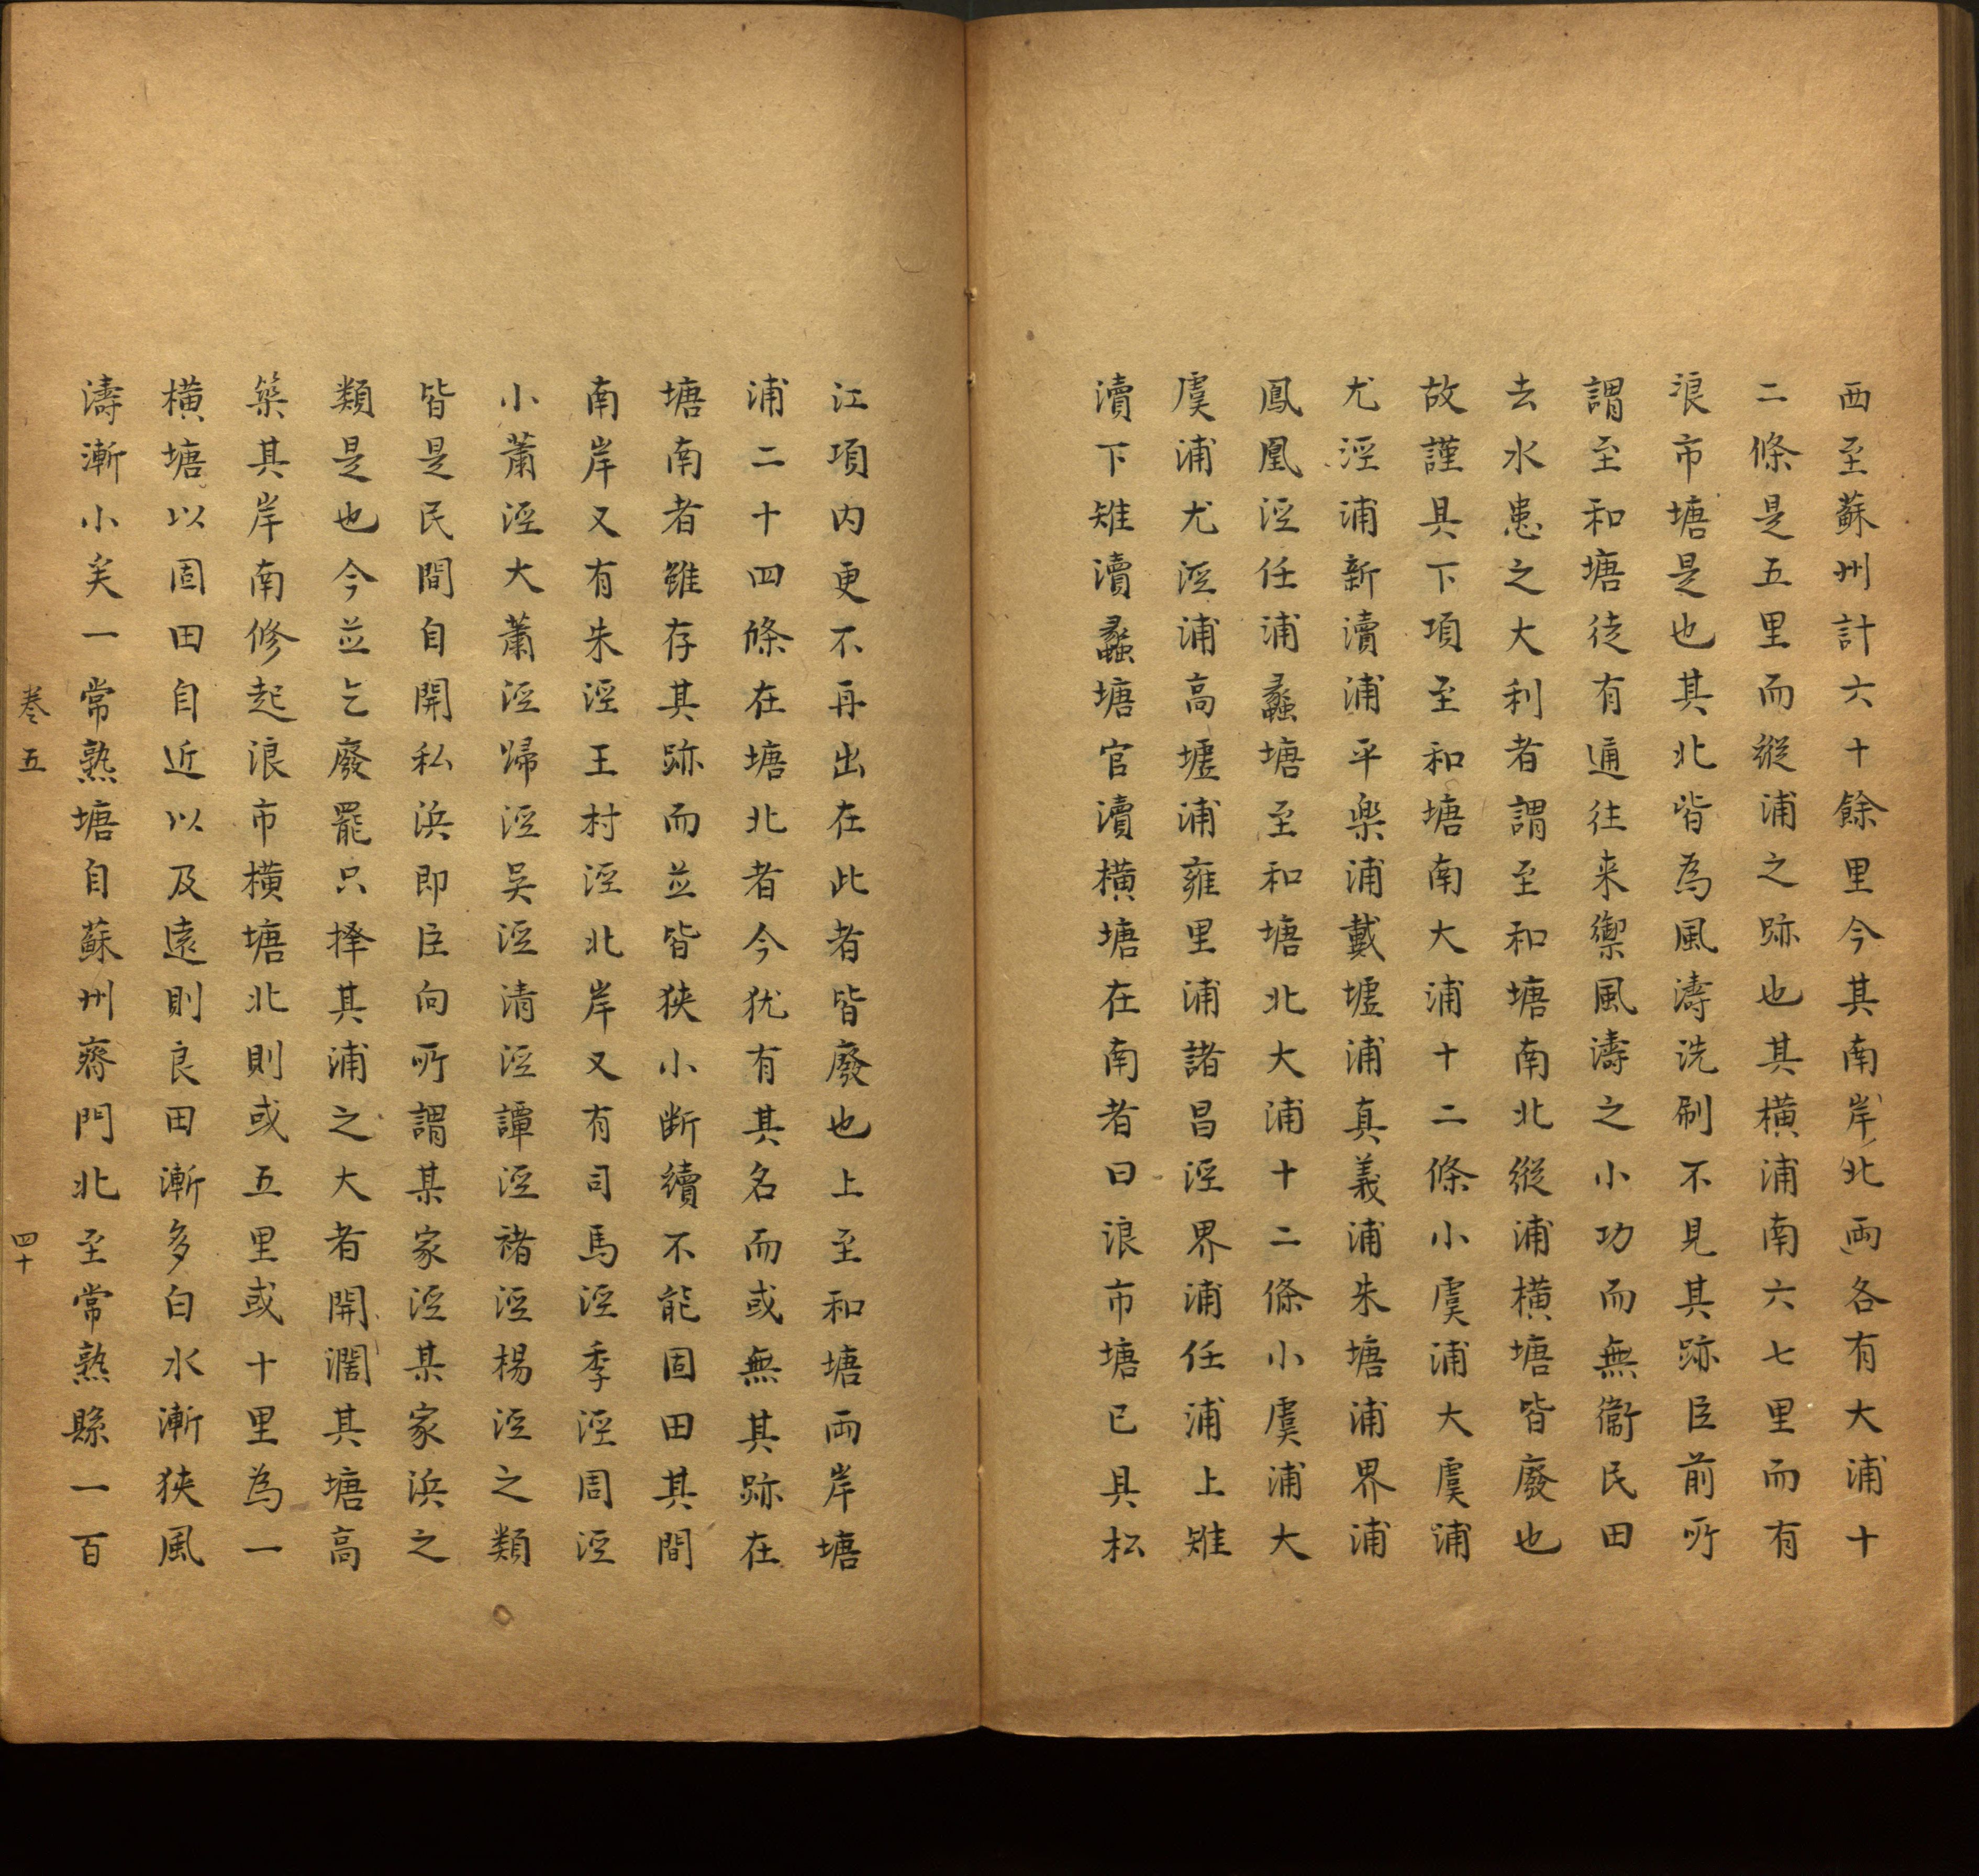 西至蘇州計六十餘里今其南岸北兩各有大浦十
二條是五里而縱浦之跡也其橫浦南六七里而有
浪市塘是也其北皆為風濤洗刷不見其跡臣前所
謂至和塘徒有通往来禦風濤之小功而無衞民田
去水患之大利者謂至和塘南北縱浦橫塘皆廢也
故謹具下項至和塘南大浦十二條小虞浦大虞浦
尤涇浦新瀆浦平樂浦戴墟浦真義浦朱塘浦界浦
鳳凰涇任浦蠡塘至和塘北大浦十二條小虞浦大
虞浦尤涇浦高墟浦雍里浦諸昌涇界浦任浦上雉
瀆下雉瀆蠡塘官瀆橫塘在南者曰浪市塘已具松
江項内更不再出在此者皆廢也上至和塘兩岸塘
浦二十四條在塘北者今犹有其名而或無其跡在
塘南者雖存其跡而並皆狹小断續不能固田其間
南岸又有朱涇王村涇北岸又有司馬涇季涇周涇
小蕭涇大蕭涇歸涇吳涇清涇譚涇褚涇楊涇之類
皆是民間自開私浜即臣向所謂某家涇某家浜之
類是也今並乞廢罷只擇其浦之大者開濶其塘高
築其岸南修起浪市橫塘北則或五里或十里為一
橫塘以固田自近以及遠則良田漸多白水漸狹風
濤漸小矣一常熟塘自蘇州齊門北至常熟縣一百
卷五
四十